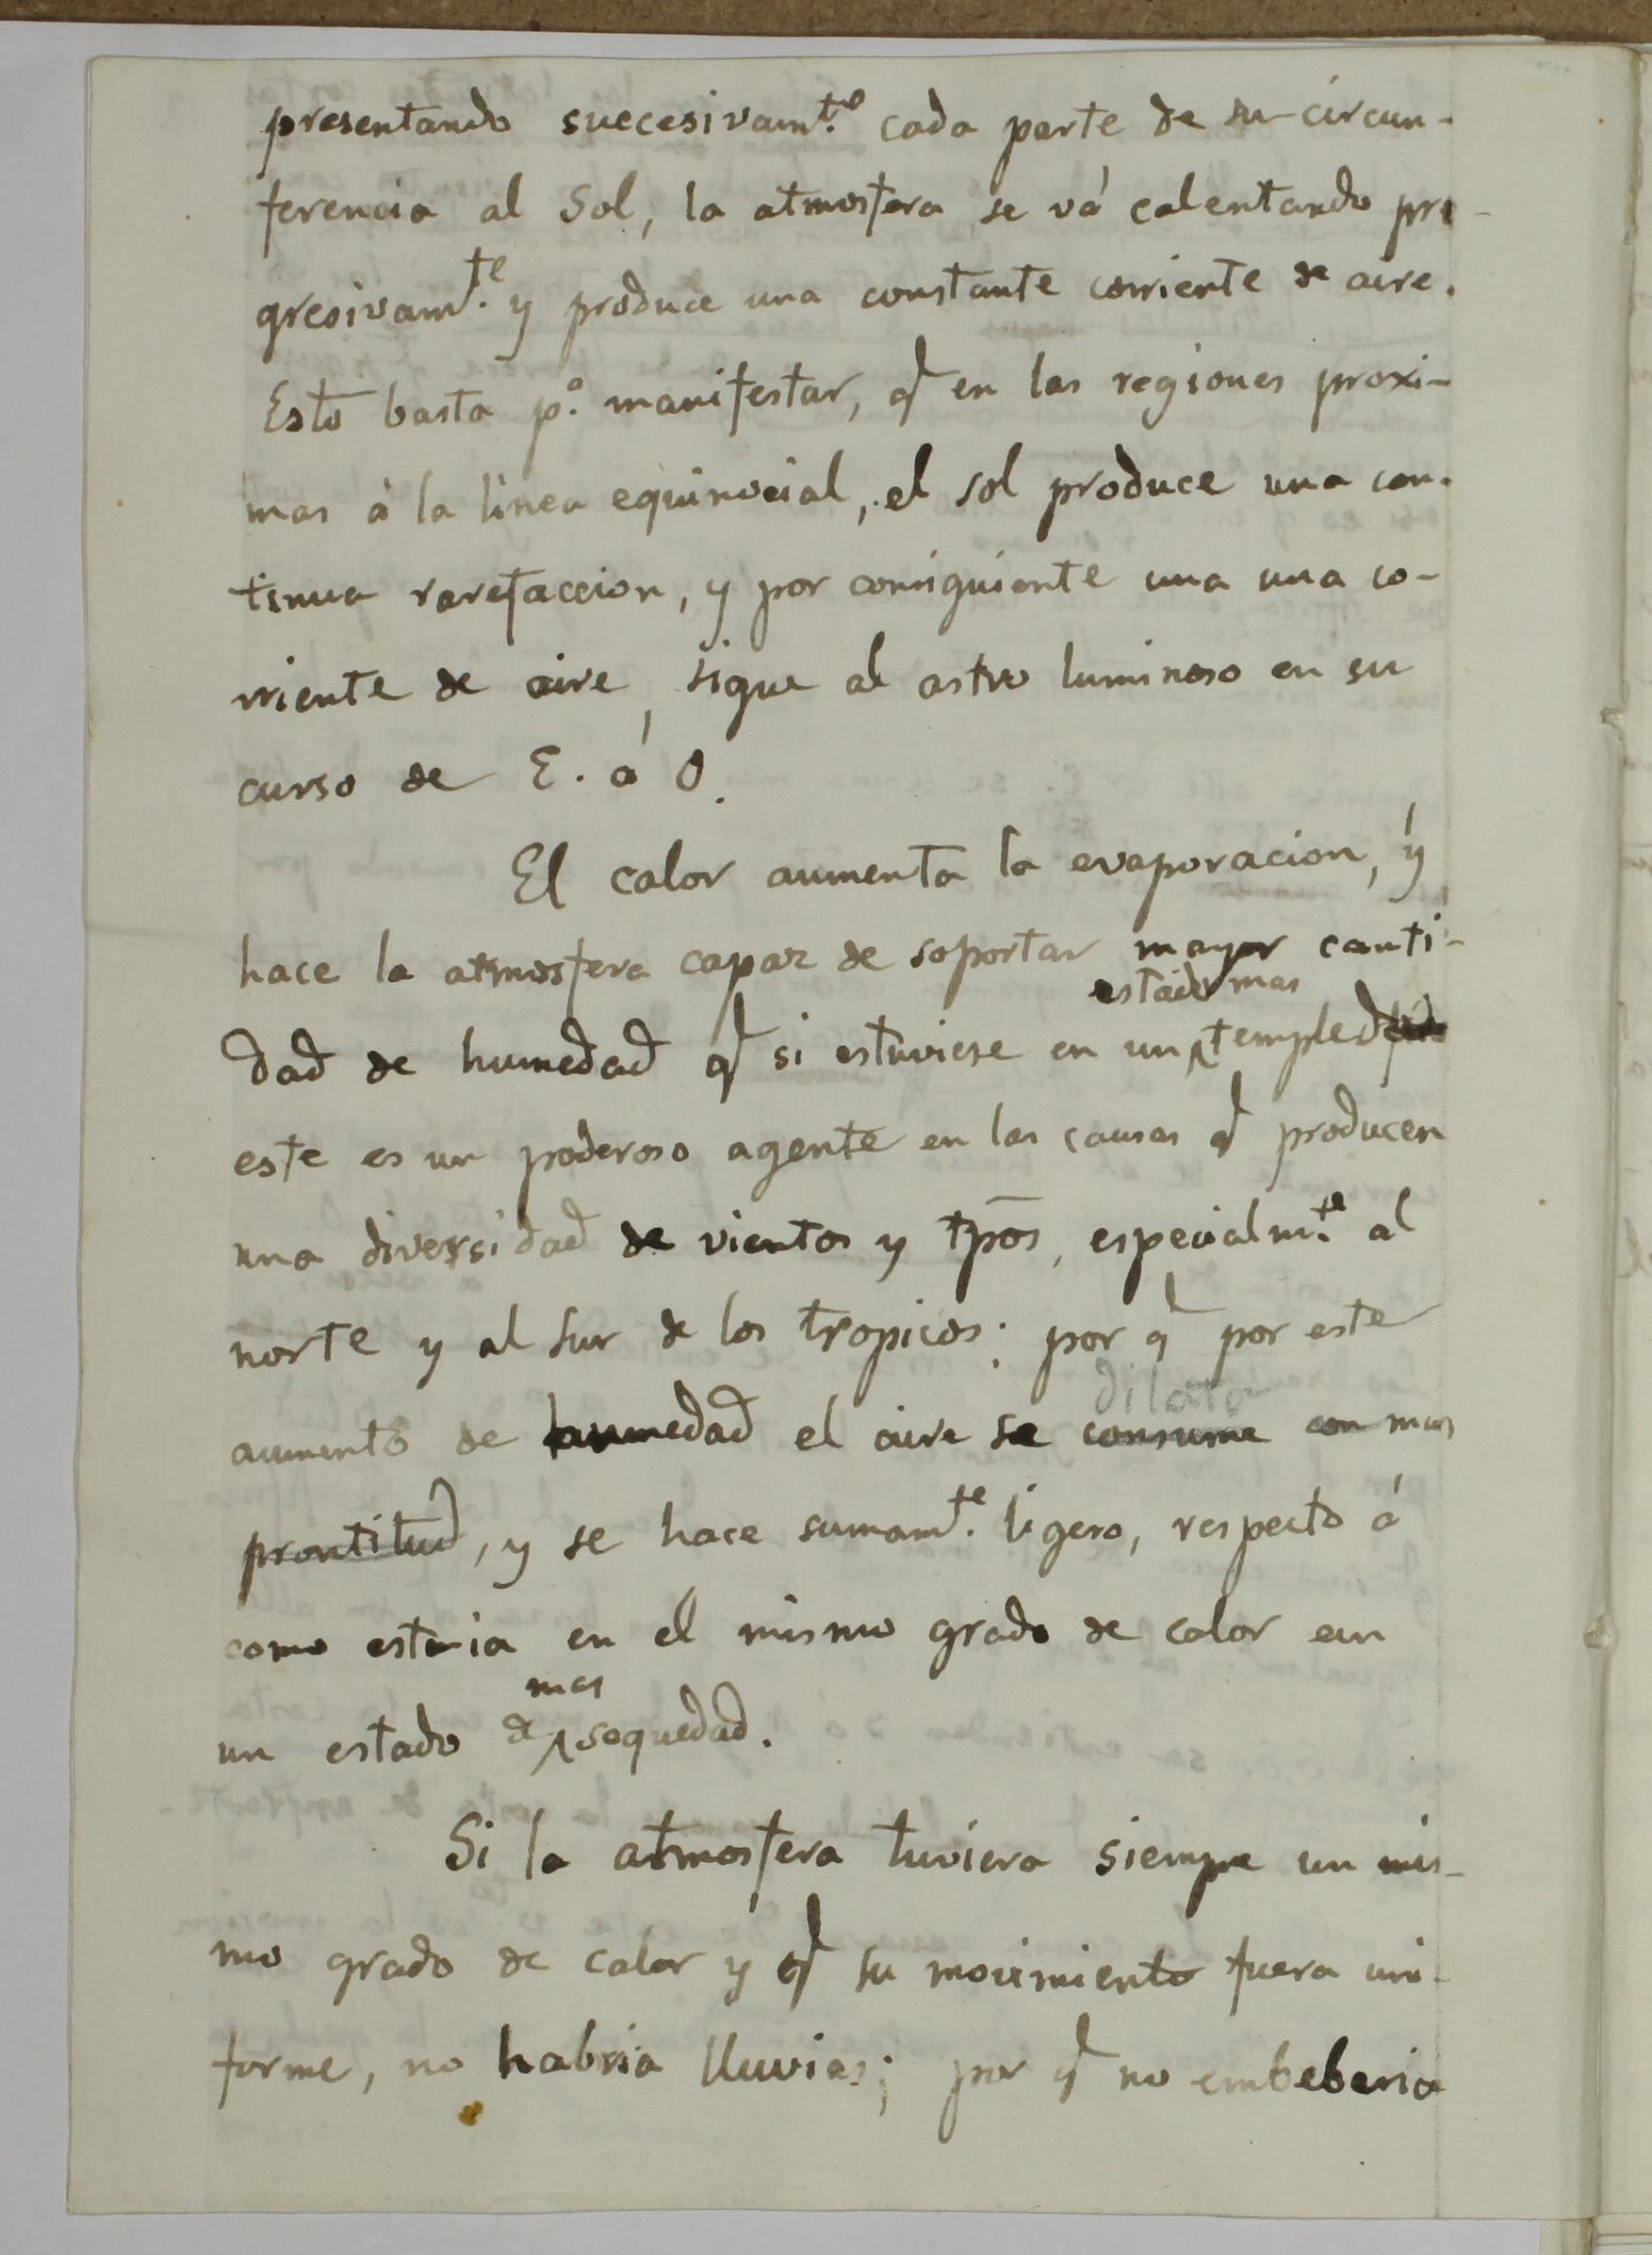 presentando succesivam.te cada parte de su circun-
ferencia al Sol, la atmosfera se vá calentando pro-
gresivam.te y produce una constante corriente de aire.
Esto basta p.a manifestar, q.e en las regiones proxi-
mas á la linea equinocial, el sol produce una con-
tinua rarefaccion, y por consiguiente una una co-
rriente de aire, sigue al astro luminoso en su
curso de E. á O.
El calor aumenta la evaporacion, y
hace la atmosfera capaz de soportar mayor canti-
estado mas
dad de humedad q.e si estuviese en un templado
este es un poderoso agente en las causas q.e producen
una diversidad de vientos y tpõs, especialm.te al
norte y al Sur de los tropicos; por q.e por este
dilata
aumento de humedad el aire se consume con mas
prontitud, y se hace sumam.te ligero, respecto á
como estaria en el mismo grado de calor en
mas
un estado de sequedad.
Si la atmosfera tuviera siempre un mis-
mo grado de calor y q.e su movimiento fuera uni-
forme, no habria lluvias; por q.e no embeberia